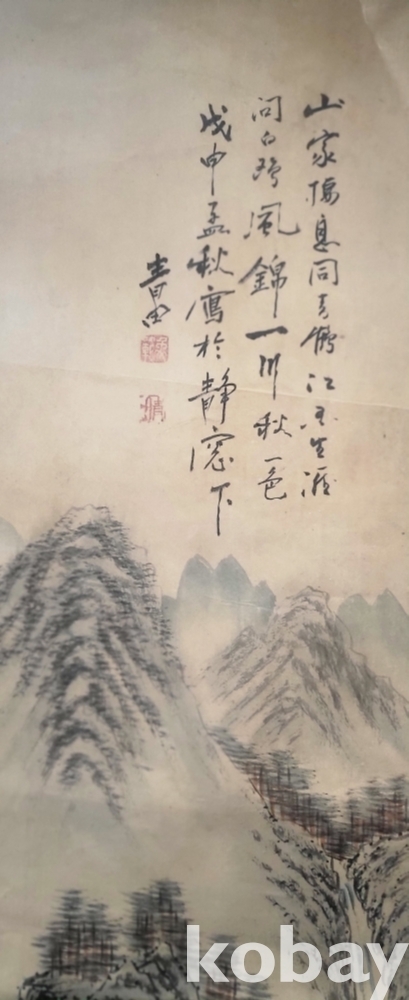 山家棲息同青鶴江天生涯
問白鷗風錦一川秋一色
戊申孟秋寫於靜窓下
kobay